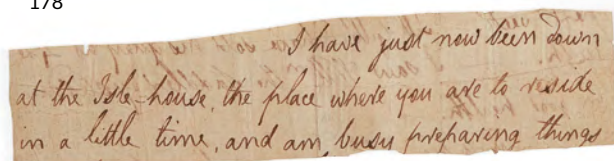 178
I have just now been down
at the Isle-house, the place where you are to reside
in a little time, and am busy preparing things